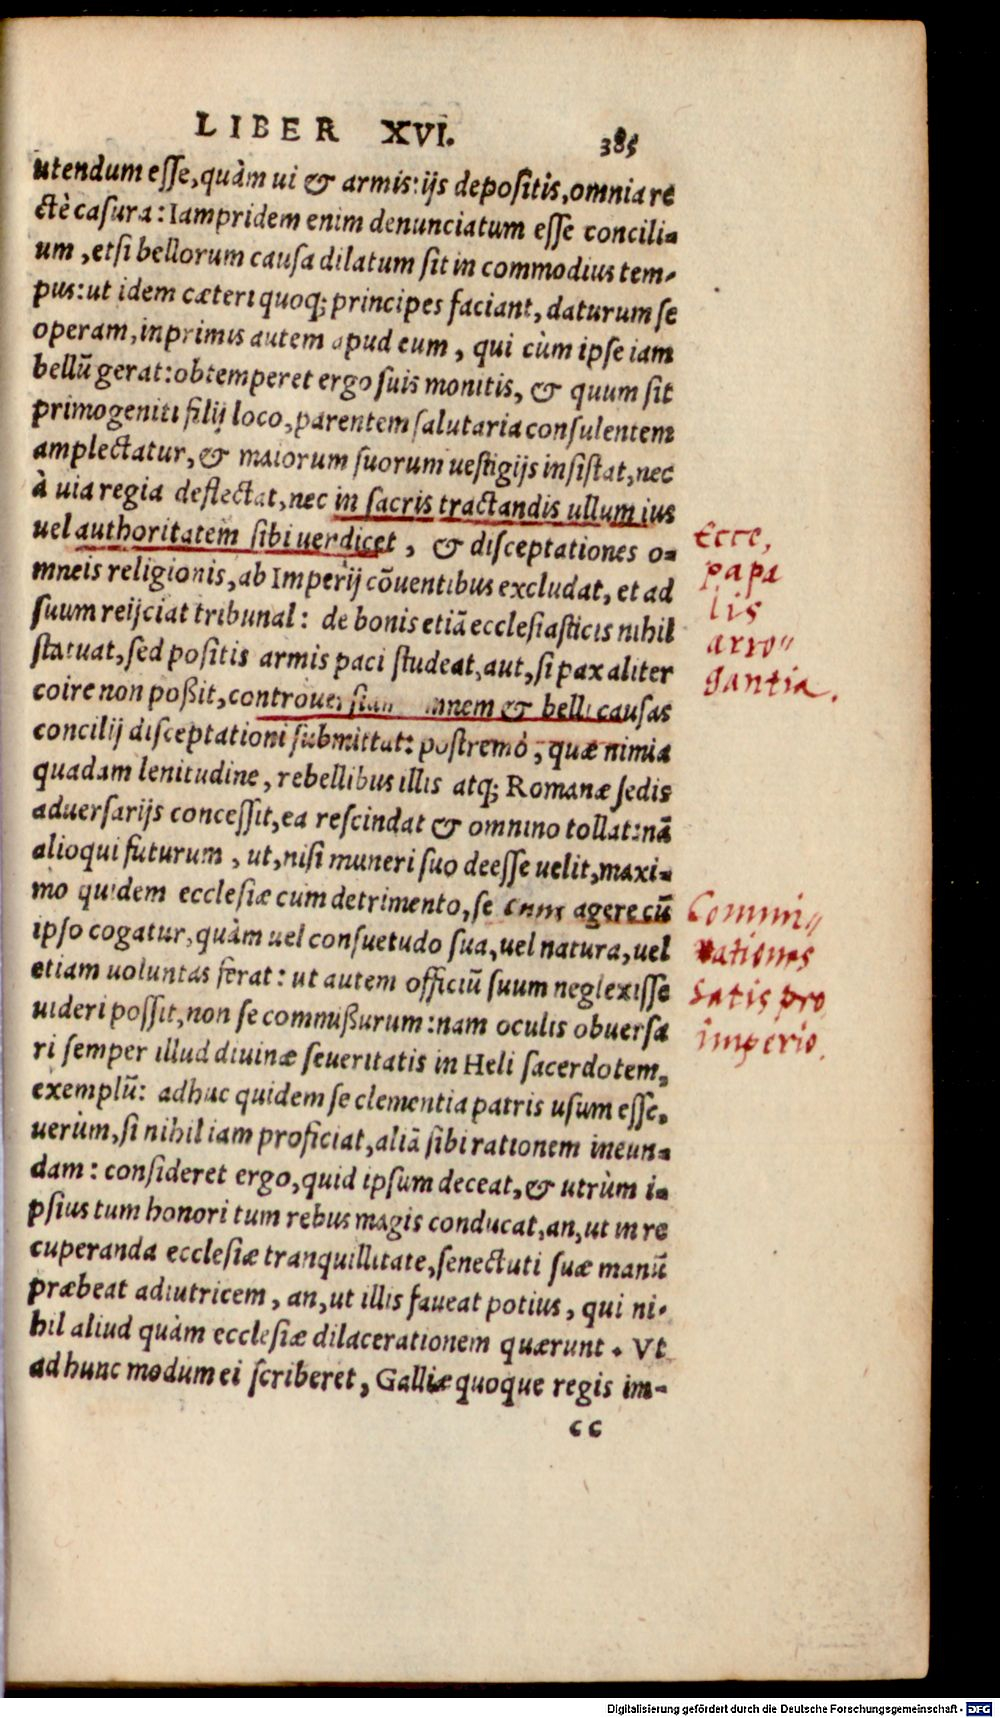 LIBER XVI. 385
utendum esse, quàm ui & armis: ijs depositis, omnia re
ctè casura: Iampridem enim denunciatum esse concili-
um, etsi bellorum causa dilatum sit in commodius tem-
pus: ut idem cæteri quoq; principes faciant, daturum se
operam, inprimis autem apud eum, qui cùm ipse iam
bellū gerat: obtemperet ergo suis monitis, & quum sit
primogeniti filij loco, parentem salutaria consulentem
amplectatur, & maiorum suorum uestigijs insistat, nec
à uia regia deflectat, nec in sacris tractandis ullum ius
uel authoritatem sibi uendicet, & disceptationes o-
mneis religionis, ab Imperij cōuentibus excludat, et ad
suum reijciat tribunal: de bonis etiā ecclesiasticis nihil
statuat, sed positis armis paci studeat, aut, si pax aliter
coire non poßit, controuersiam omnem & belli causas
concilij disceptationi submittat: postremò, quæ nimia
quadam lenitudine, rebellibus illis atq; Romanæ sedis
aduersarijs concessit, ea rescindat & omnino tollat: nā
alioqui futurum, ut, nisi muneri suo deesse uelit, maxi-
mo quidem ecclesiæ cum detrimento, se agere cū
ipso cogatur, quàm uel consuetudo sua, uel natura, uel
etiam uoluntas ferat: ut autem officiū suum neglexisse
uideri possit, non se commißurum: nam oculis obuersa
ri semper illud diuinæ seueritatis in Heli sacerdotem,
exemplū: adhuc quidem se clementia patris usum esse,
uerùm, si nihil iam proficiat, aliā sibi rationem ineun-
dam: consideret ergo, quid ipsum deceat, & utrùm i-
psius tum honori tum rebus magis conducat, an, ut in re
cuperanda ecclesiæ tranquillitate, senectuti suæ manū
præbeat adiutricem, an, ut illis faueat potius, qui ni-
hil aliud quàm ecclesiæ dilacerationem quærunt. Vt
ad hunc modum ei scriberet, Galliæ quoque regis im-
cc
Ecce,
papa
lis
arro"
gantia.
Commi"
nationes
satis pro
imperio.
Digitalisierung gefördert durch die Deutsche Forschungsgemeinschaft - DFG